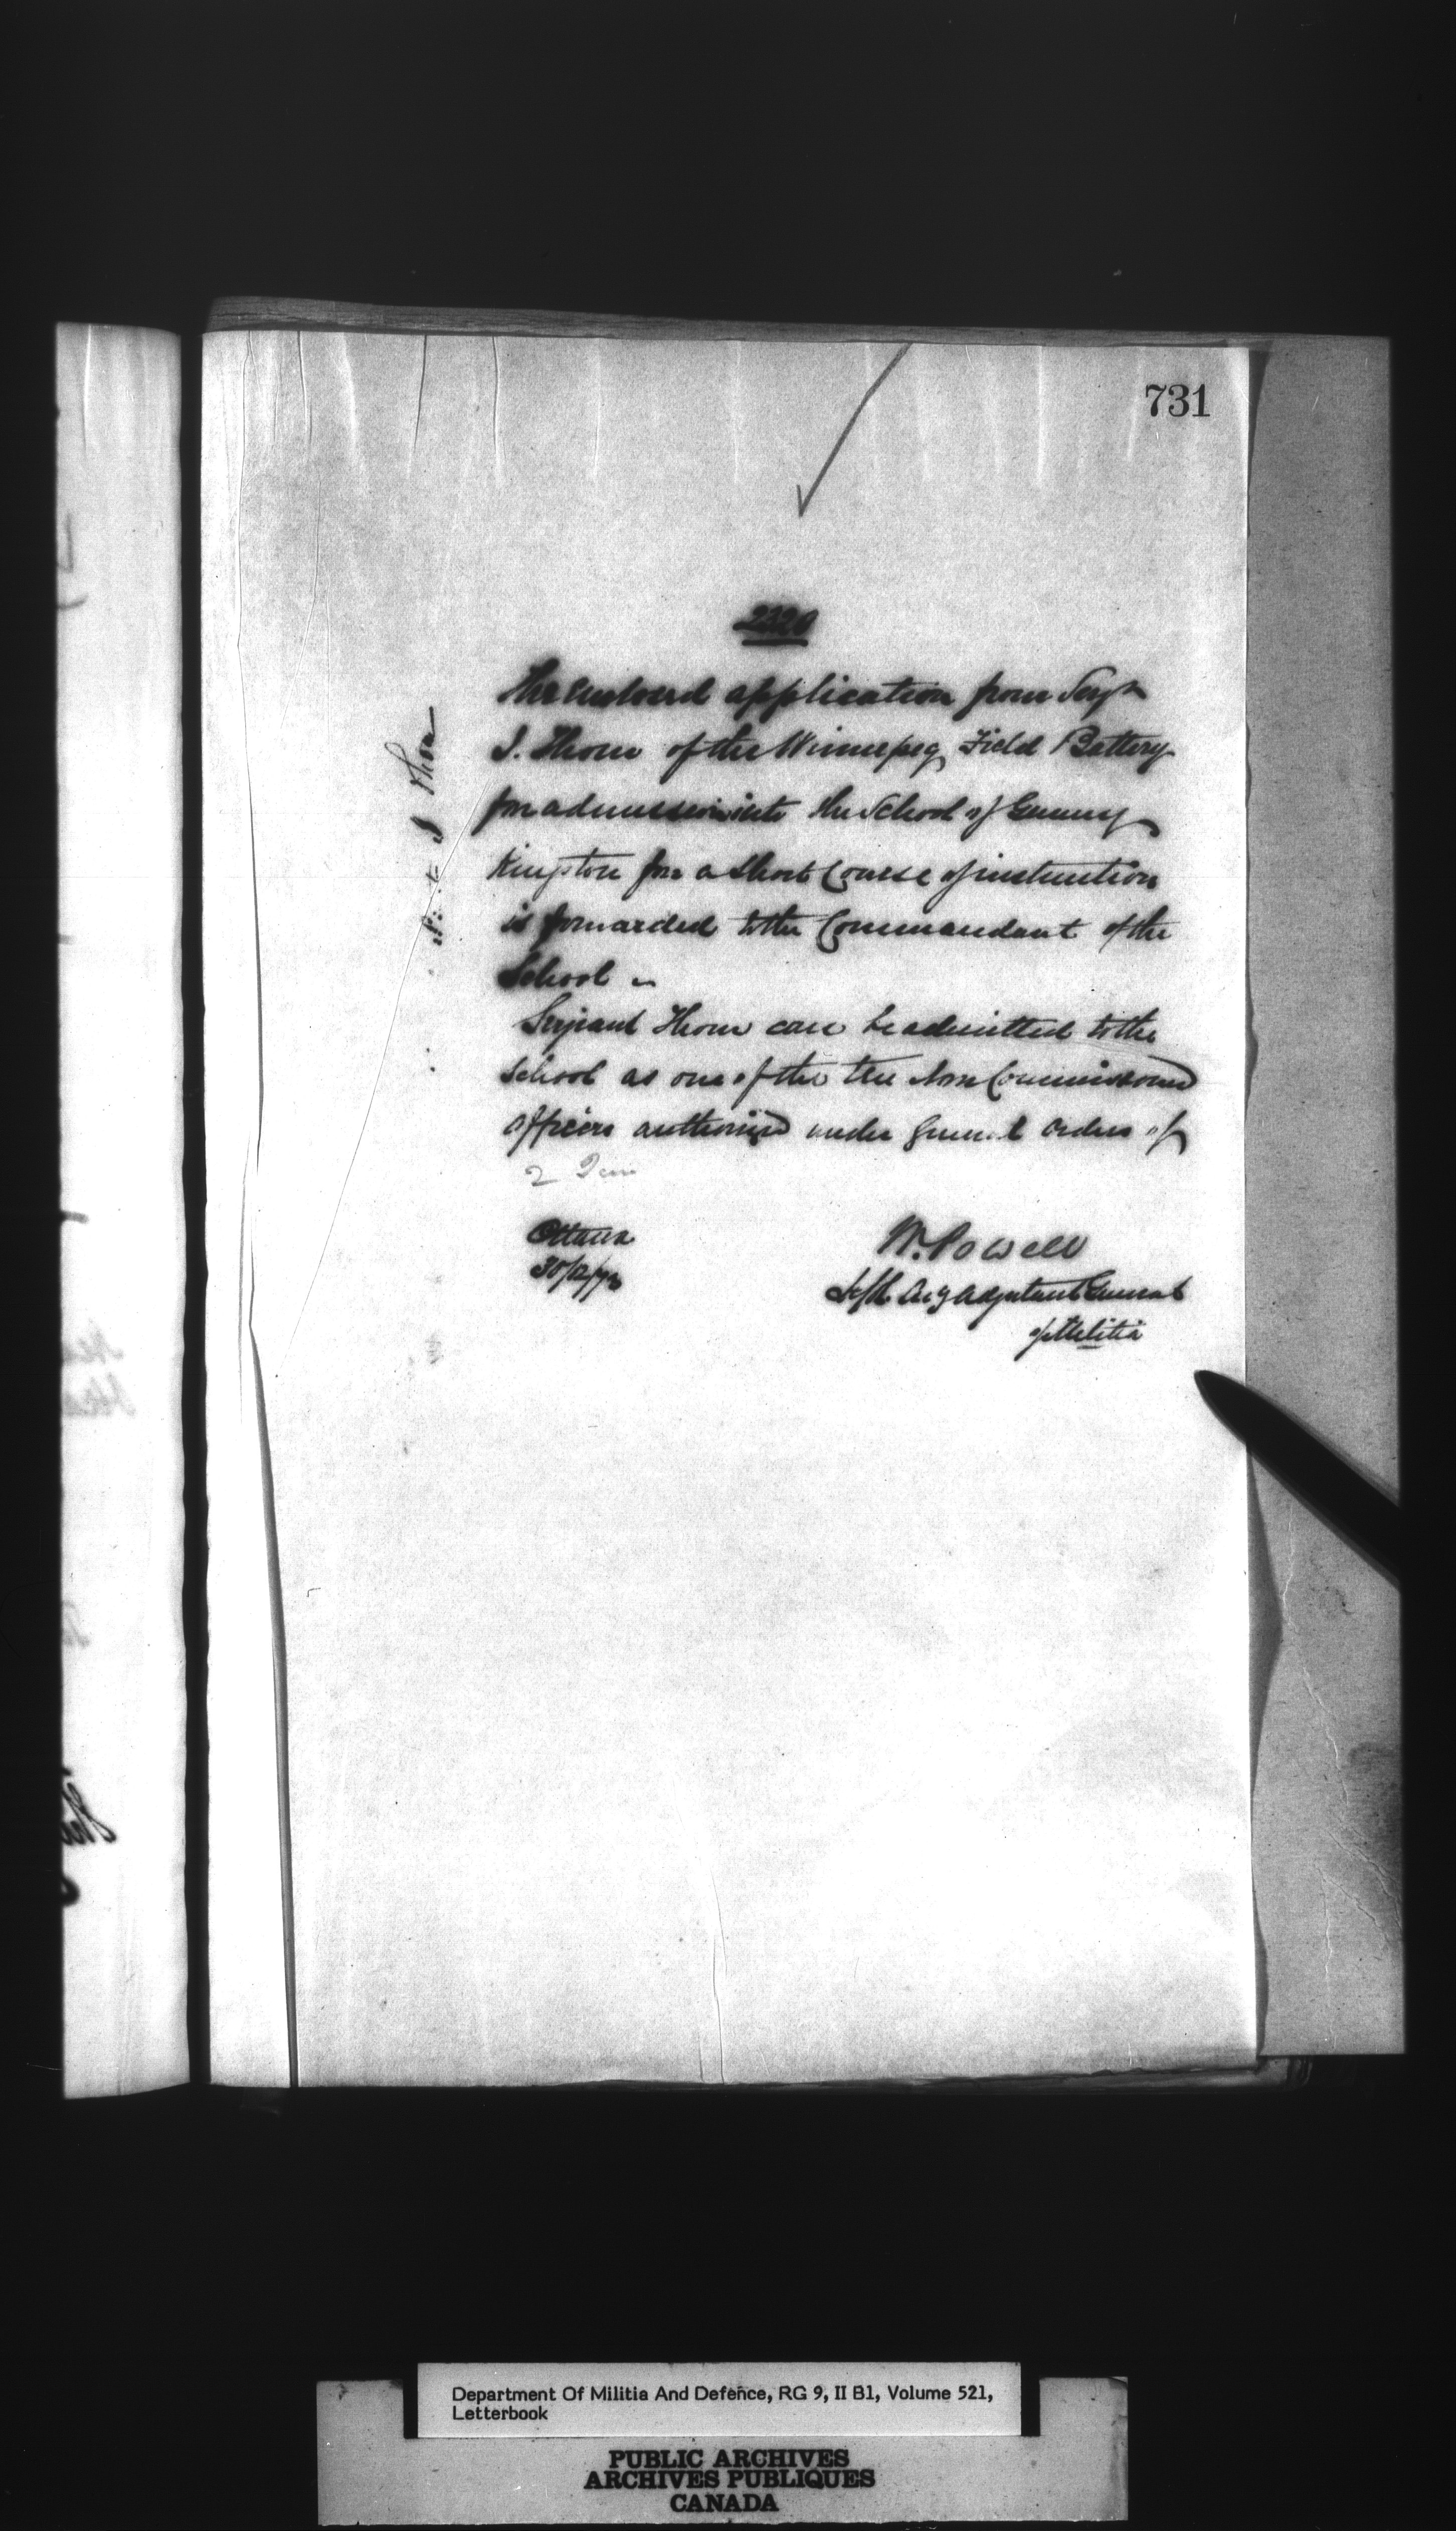 731
2320
The enclosed application from Sergt
J. Thom of the Winnipeg Field Battery
for admission into the School of Gunnery
Kingston for a Short Course of instruction
is forwarded to the Commandant of the
School
Serjeant Thom can be admitted to the
School as one of the ten Non Commissioned
officers authorized under General Orders of
2
Ottawa
30/12/73
W. Powell
Actg Adjutant General
of Militia
Thom
Department Of Militia And Defence, RG 9, II B1, Volume 521,
Letterbook
PUBLIC ARCHIVES
ARCHIVES PUBLIQUES
CANADA